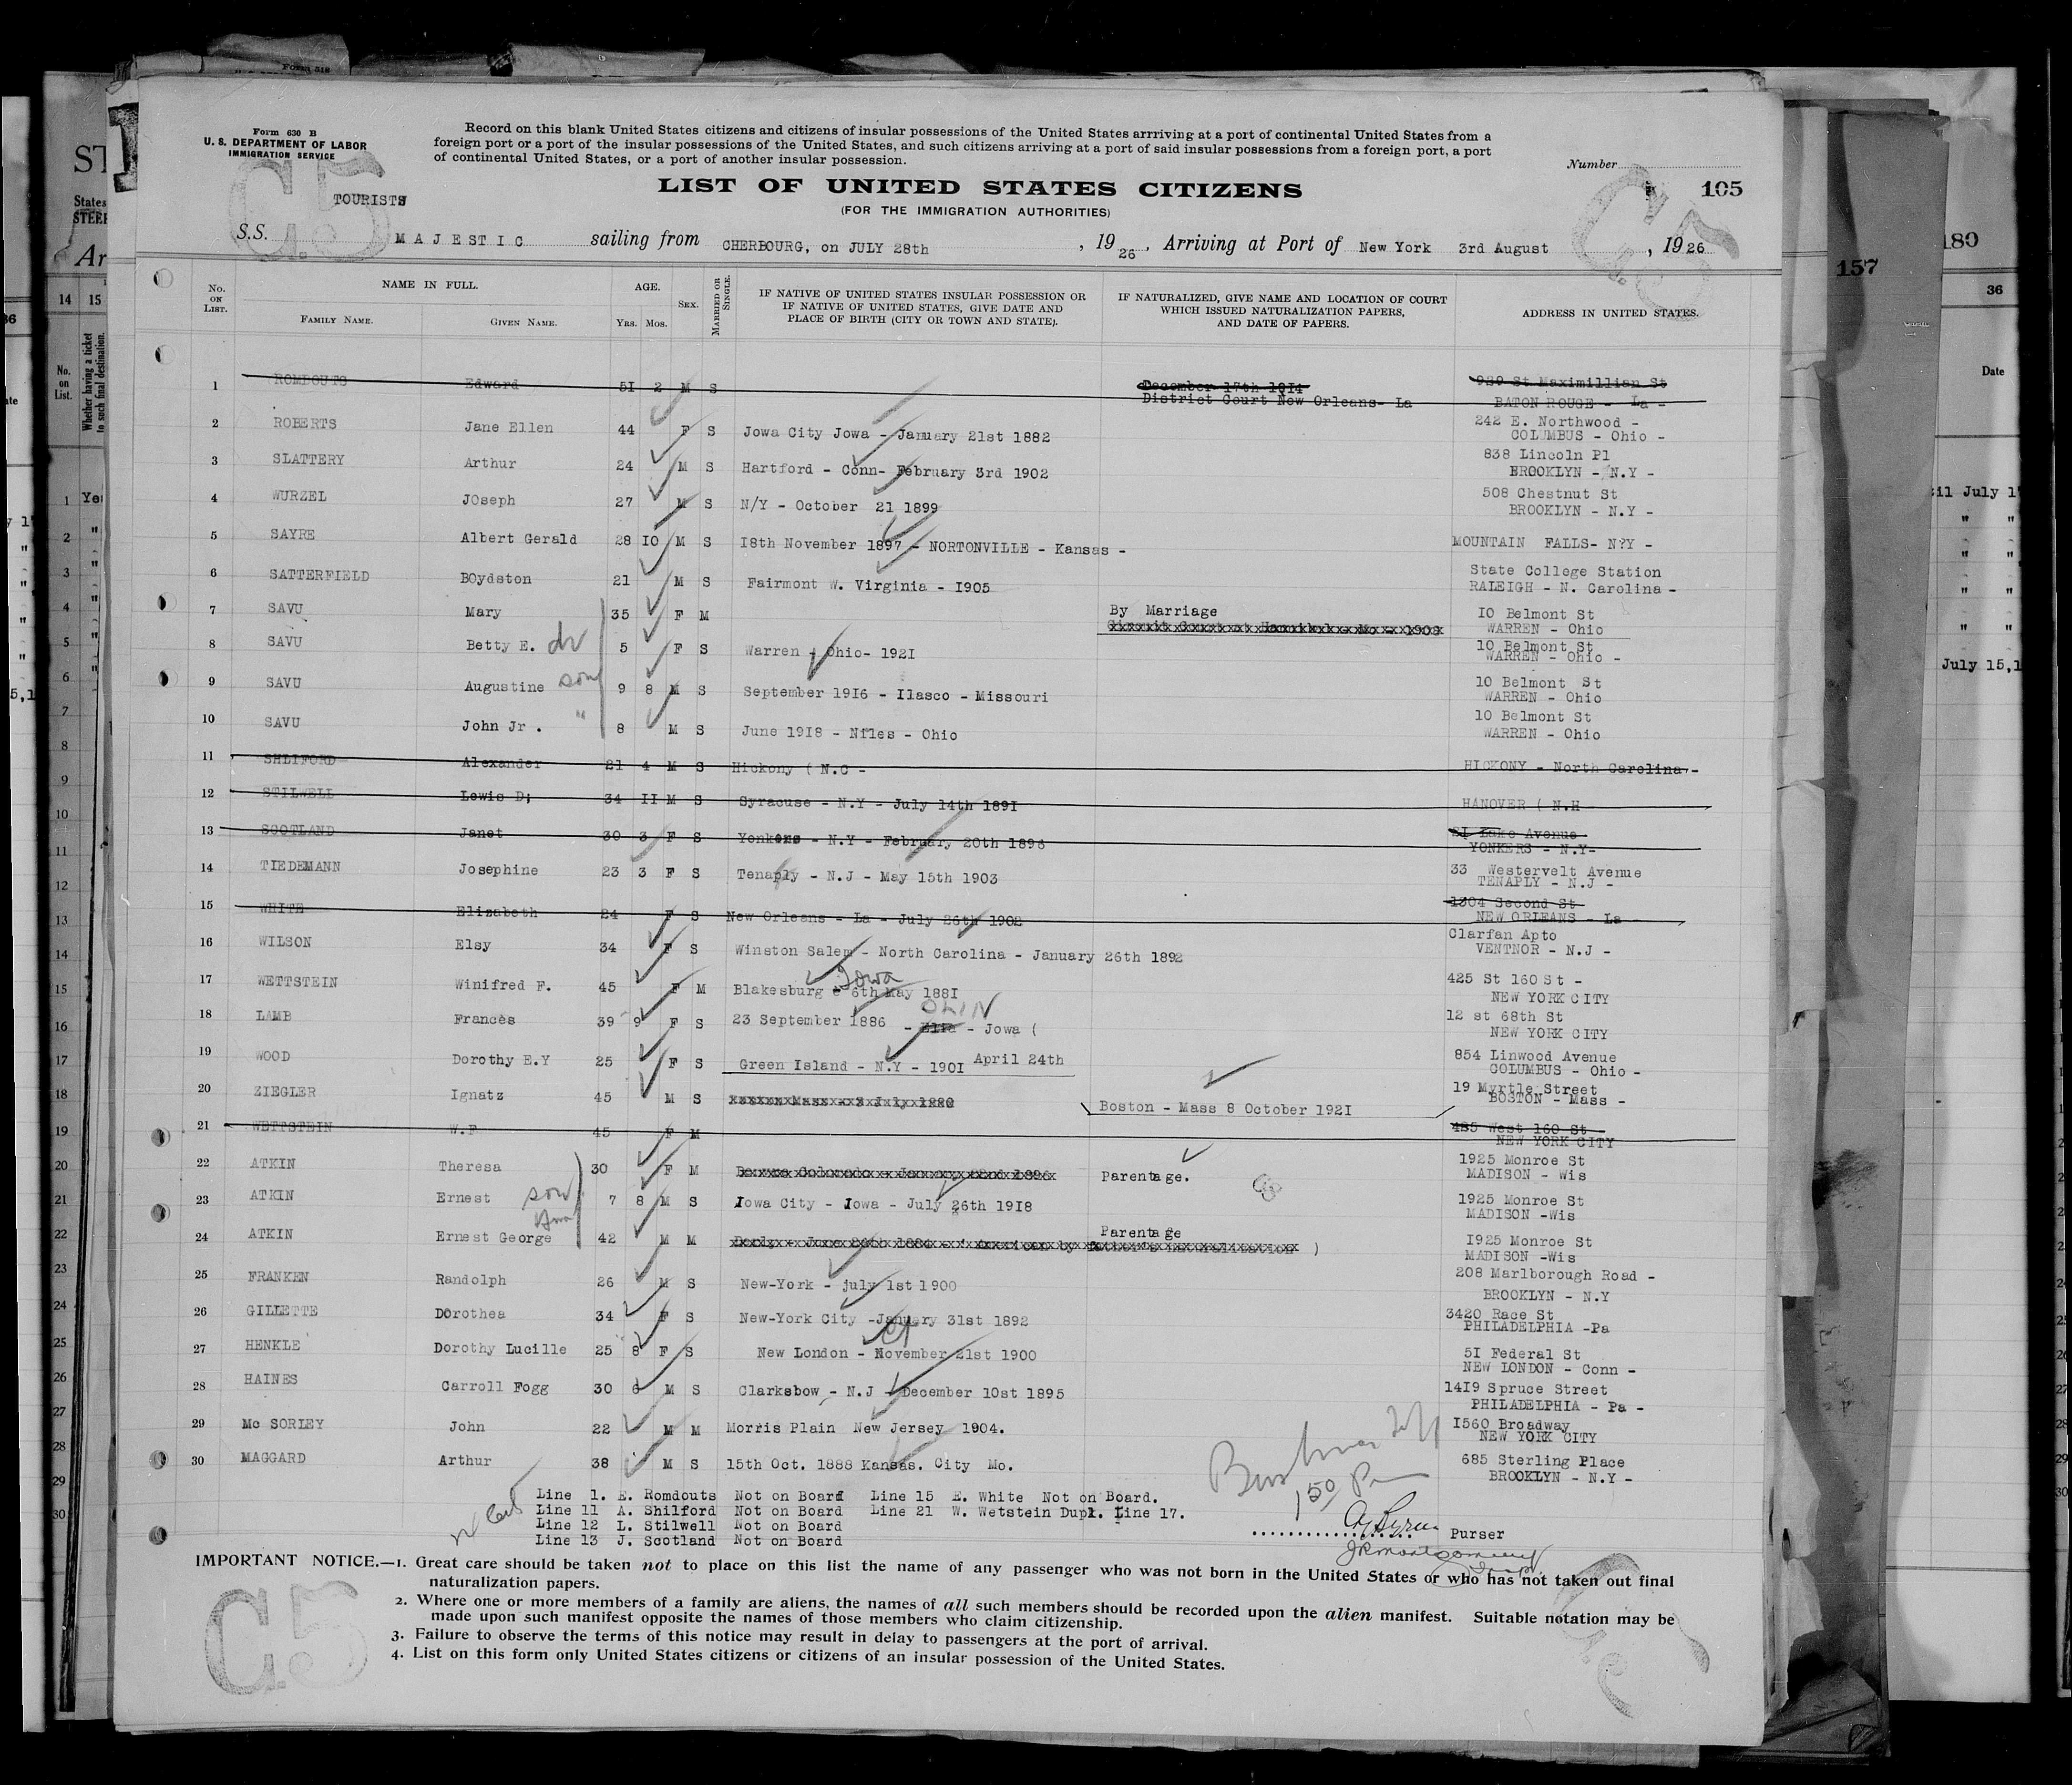 Form 630 B
U. S. DEPARTMENT OF LABOR
IMMIGRATION SERVICE
Record on this blank United States citizens and citizens of insular possessions of the United States arrriving at a port of continental United States from a
foreign port or a port of the insular possessions of the United States, and such citizens arriving at a port of said insular possessions from a foreign port, a port
of continental United States, or a port of another insular possession.
Number
105
C.5
TOURISTS
LIST OF UNITED STATES CITIZENS
(FOR THE IMMIGRATION AUTHORITIES)
S.S. MAJESTIC sailing from CHERBOURG, on JULY 28th , 1926 , Arriving at Port of New York 3rd August , 1926
No. ON LIST. NAME IN FULL. FAMILY NAME. GIVEN NAME. AGE. Yrs. Mos. SEX. MARRIED OR SINGLE. IF NATIVE OF UNITED STATES INSULAR POSSESSION OR IF NATIVE OF UNITED STATES, GIVE DATE AND PLACE OF BIRTH (CITY OR TOWN AND STATE). IF NATURALIZED, GIVE NAME AND LOCATION OF COURT WHICH ISSUED NATURALIZATION PAPERS, AND DATE OF PAPERS. ADDRESS IN UNITED STATES.
1 ROMDOUTS Edward 51 2 M S December 17th 1914 District Court New Orleans- La 939 St Maximillian St BATON ROUGE - La -
2 ROBERTS Jane Ellen 44 F S Jowa City Jowa - January 21st 1882 242 E. Northwood - COLUMBUS - Ohio -
3 SLATTERY Arthur 24 M S Hartford - Conn- February 3rd 1902 838 Lincoln Pl BROOKLYN - N.Y -
4 WURZEL JOseph 27 M S N/Y - October 21 1899 508 Chestnut St BROOKLYN - N.Y -
5 SAYRE Albert Gerald 28 10 M S 18th November 1897 - NORTONVILLE - Kansas - MOUNTAIN FALLS- N?Y -
6 SATTERFIELD BOydston 21 M S Fairmont W. Virginia - 1905 State College Station RALEIGH - N. Carolina -
7 SAVU Mary 35 F M By Marriage 10 Belmont St WARREN - Ohio
8 SAVU Betty E. dr 5 F S Warren - Ohio- 1921 10 Belmont St WARREN - Ohio -
9 SAVU Augustine son 9 8 M S September 1916 - Ilasco - Missouri 10 Belmont St WARREN - Ohio
10 SAVU John Jr . " 8 M S June 1918 - Niles - Ohio 10 Belmont St WARREN - Ohio
11 SHLIFORD Alexander 21 4 M S Hickony ( N.C - HICKONY - North Carolina -
12 STILWELL Lewis D; 34 11 M S Syracuse - N.Y - July 14th 1891 HANOVER ( N.H
13 SCOTLAND Janet 30 3 F S Yonkers - N.Y - February 20th 1896 21 Lake Avenue YONKERS - N.Y-
14 TIEDEMANN Josephine 23 3 F S Tenaply - N.J - May 15th 1903 33 Westervelt Avenue TENAPLY - N.J -
15 WHITE Elizabeth 24 F S New Orleans - La - July 26th 1902 1304 Second St NEW ORLEANS - La
16 WILSON Elsy 34 F S Winston Salem - North Carolina - January 26th 1892 Clarfan Apto VENTNOR - N.J -
17 WETTSTEIN Winifred F. 45 F M Blakesburg Iowa 6th May 1881 425 St 160 St - NEW YORK CITY
18 LAMB Frances 39 9 F S 23 September 1886 - OLIN - Jowa ( 12 st 68th St NEW YORK CITY
19 WOOD Dorothy E.Y 25 F S Green Island - N.Y - 1901 April 24th 854 Linwood Avenue COLUMBUS - Ohio -
20 ZIEGLER Ignatz 45 M S Boston - Mass 8 October 1921 19 Myrtle Street BOSTON - Mass -
21 WETTSTEIN W.F 45 F M 425 West 160 St - NEW YORK CITY
22 ATKIN Theresa 30 F M Parentage. 1925 Monroe St MADISON - Wis
23 ATKIN Ernest son 7 8 M S Iowa City - Iowa - July 26th 1918 1925 Monroe St MADISON -Wis
24 ATKIN Ernest George 42 M M Parentage ) 1925 Monroe St MADISON -Wis
25 FRANKEN Randolph 26 M S New-York - july 1st 1900 208 Marlborough Road - BROOKLYN - N.Y
26 GILLETTE DOrothea 34 F S New-York City -January 31st 1892 3420 Race St PHILADELPHIA -Pa
27 HENKLE Dorothy Lucille 25 8 F S New London - Ct November 21st 1900 51 Federal St NEW LONDON - Conn -
28 HAINES Carroll Fogg 30 6 M S Clarksbow - N.J - December 10st 1895 1419 Spruce Street PHILADELPHIA - Pa -
29 Mc SORLEY John 22 M M Morris Plain New Jersey 1904. 1560 Broadway NEW YORK CITY
30 MAGGARD Arthur 38 M S 15th Oct. 1888 Kansas. City Mo. 685 Sterling Place BROOKLYN - N.Y -
Line 1. E. Romdouts Not on Board Line 15 E. White Not on Board.
Line 11 A. Shilford Not on Board Line 21 W. Wetstein Dupl. Line 17.
Line 12 L. Stilwell Not on Board
Line 13 J. Scotland Not on Board
Purser
IMPORTANT NOTICE.—1. Great care should be taken not to place on this list the name of any passenger who was not born in the United States or who has not taken out final
naturalization papers.
2. Where one or more members of a family are aliens, the names of all such members should be recorded upon the alien manifest. Suitable notation may be
made upon such manifest opposite the names of those members who claim citizenship.
3. Failure to observe the terms of this notice may result in delay to passengers at the port of arrival.
4. List on this form only United States citizens or citizens of an insular possession of the United States.
C.5
157
180
36
Date
July 15,1